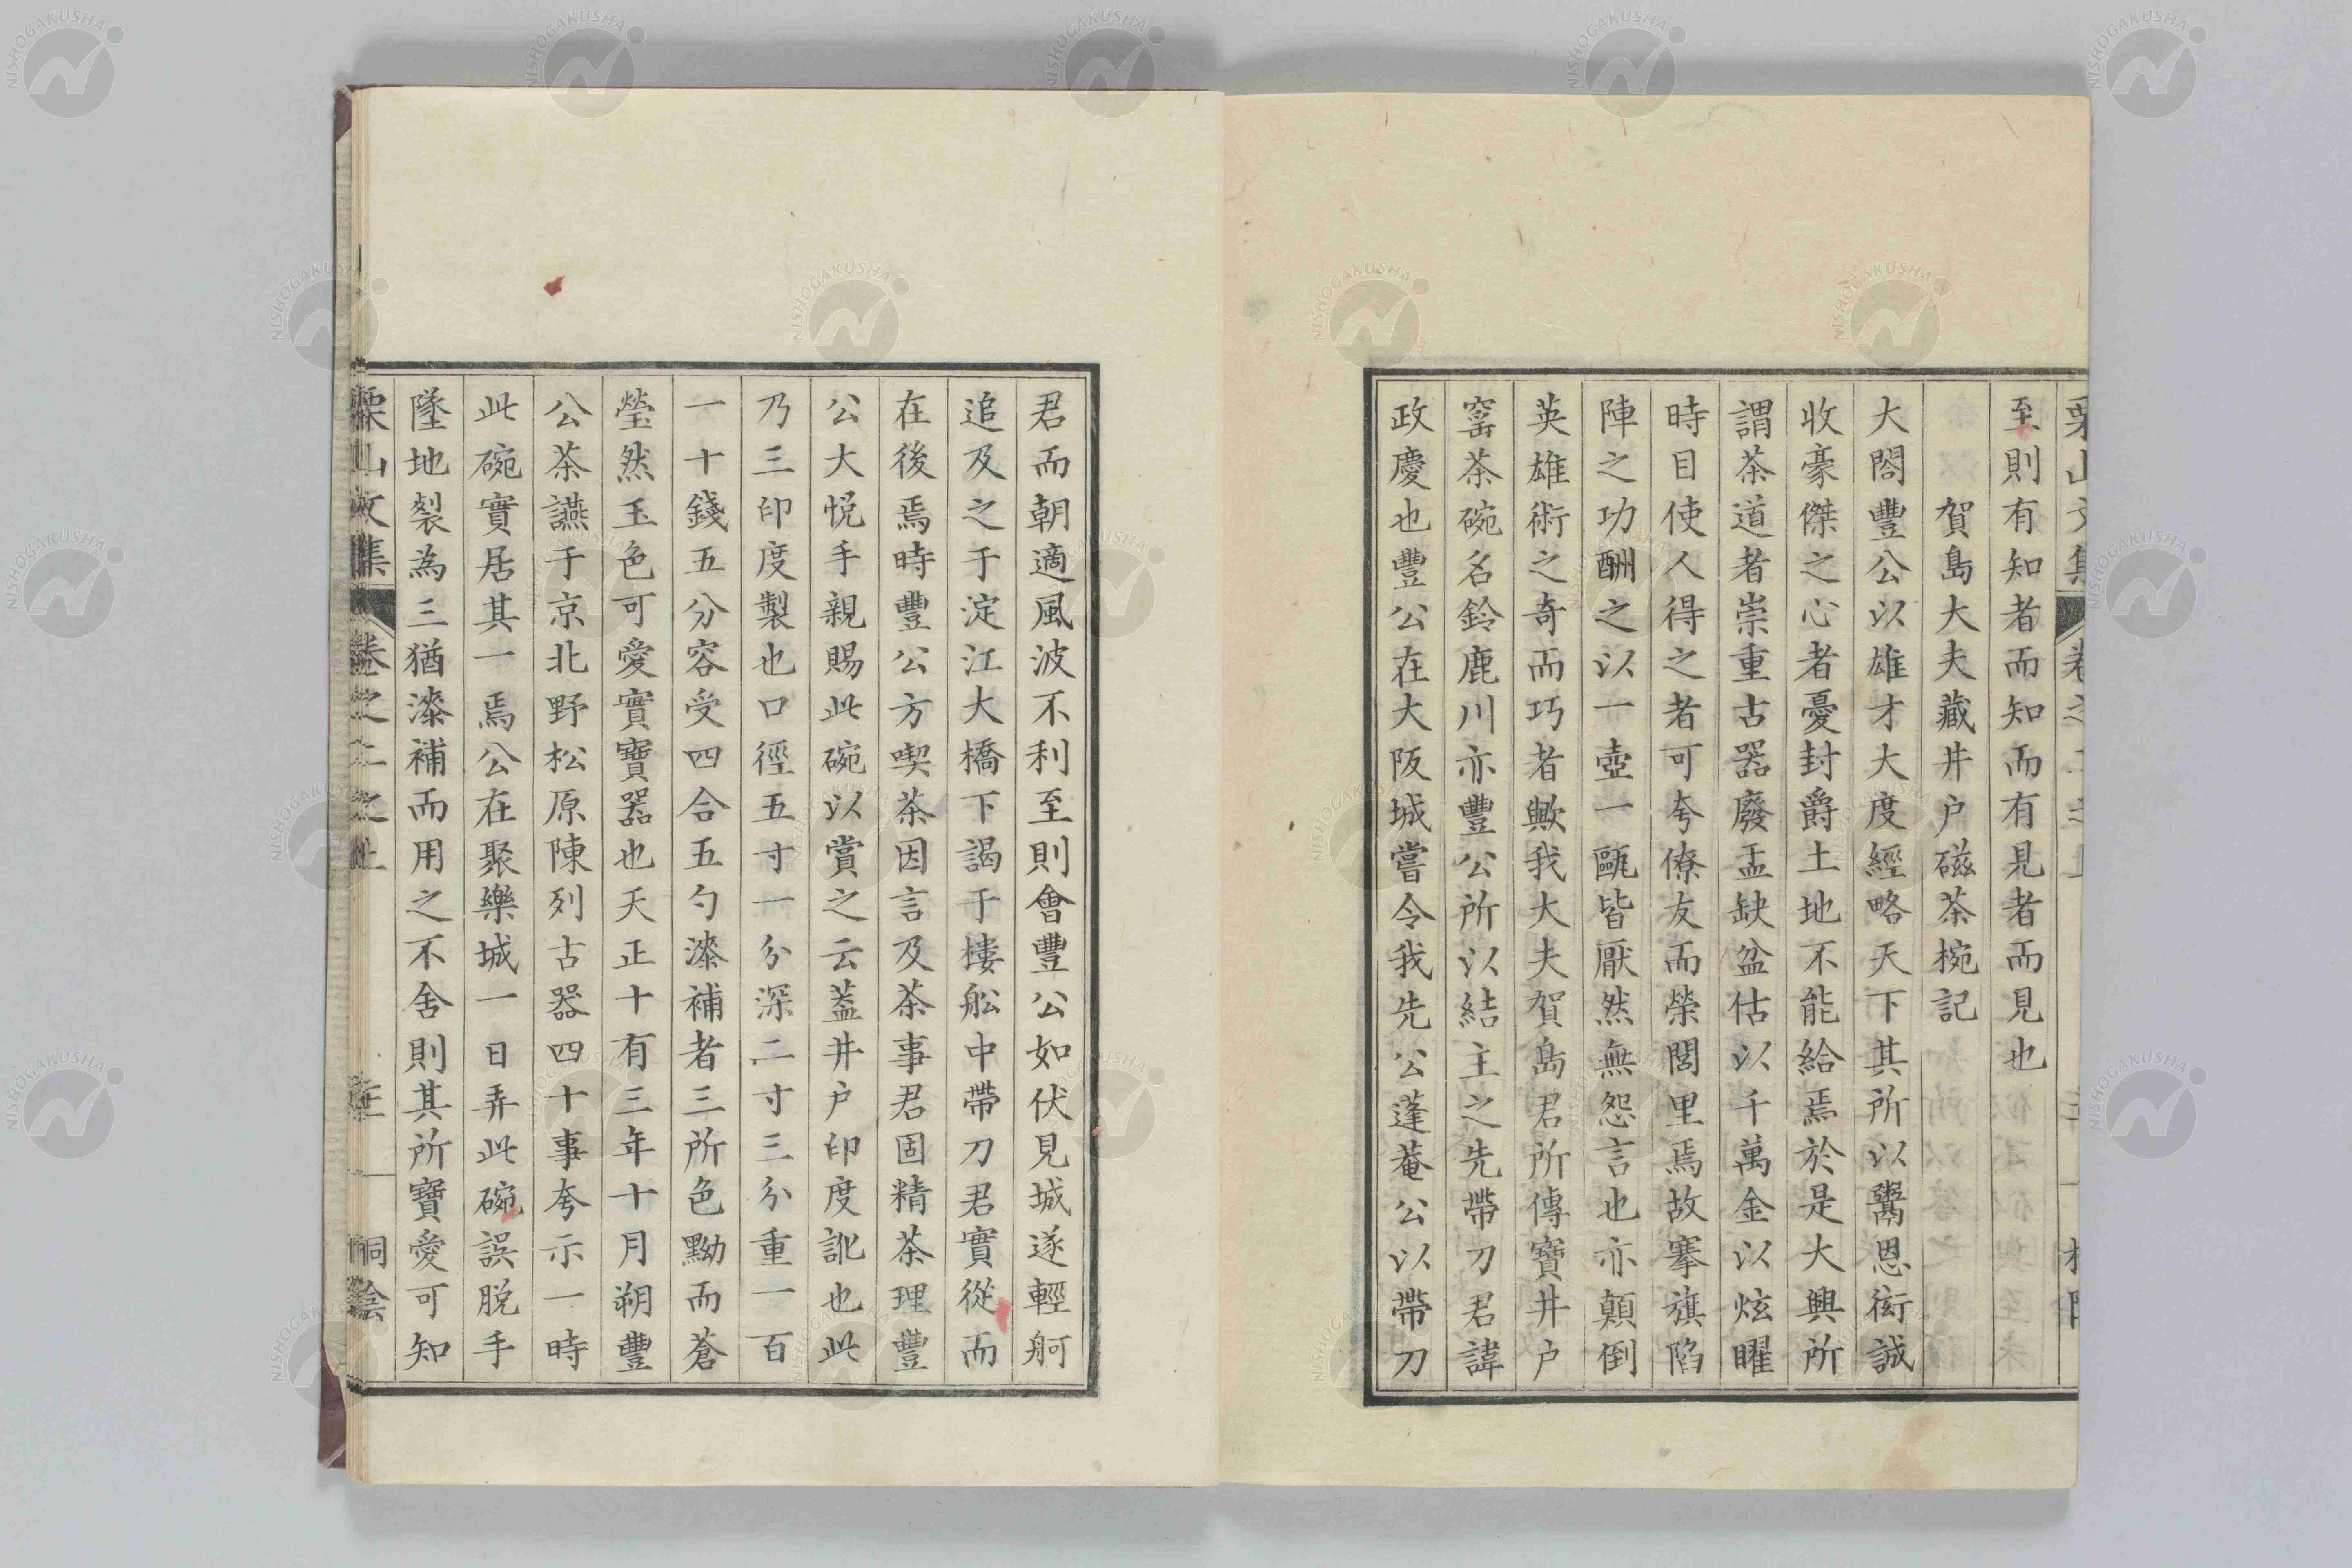 至則有知者而知而有見者而見也
賀島大夫藏井户磁茶椀記
大閤豐公以雄才大度經略天下其所以鬻恩衒誠
收豪傑之心者憂封爵土地不能給焉於是大興所
謂茶道者崇重古器廢盂缺盆估以千萬金以炫曜
時目使人得之者可夸僚友而榮閭里焉故搴旗陷
陣之功酬之以一壺一甌皆厭然無怨言也亦顛倒
英雄術之奇而巧者歟我大夫賀島君所傳寶井户
窑茶碗名鈴鹿川亦豐公所以結主之先帶刀君諱
政慶也豐公在大阪城嘗令我先公蓬菴公以帶刀
君而朝適風波不利至則會豐公如伏見城遂輕舸
追及之于淀江大橋下謁于樓舩中帶刀君實從而
在後焉時豐公方喫茶因言及茶事君固精茶理豐
公大悦手親賜此碗以賞之云葢井户印度訛也此
乃三印度製也口徑五寸一分深二寸三分重一百
一十錢五分容受四合五勺漆補者三所色黝而蒼
瑩然玉色可愛實寶器也天正十有三年十月朔豐
公茶讌于京北野松原陳列古器四十事夸示一時
此碗實居其一焉公在聚樂城一日弄此碗誤脱手
墜地裂為三猶漆補而用之不舍則其所寶愛可知
栗山文集 卷之二之上 桐陰